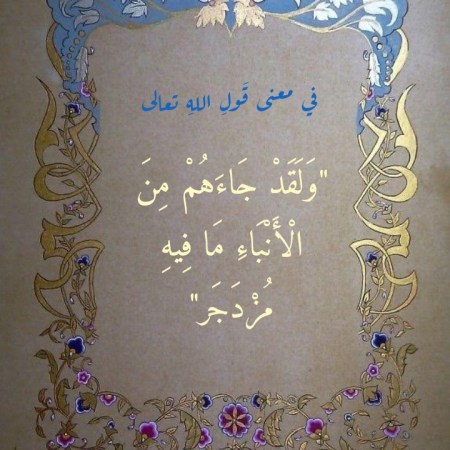 في معنى قَولِ اللهِ تعالى
"وَلَقَدْ جَاءَهُمْ مِنَ
الْأَنْبَاءِ مَا فِيهِ
مُزْدَجَر"